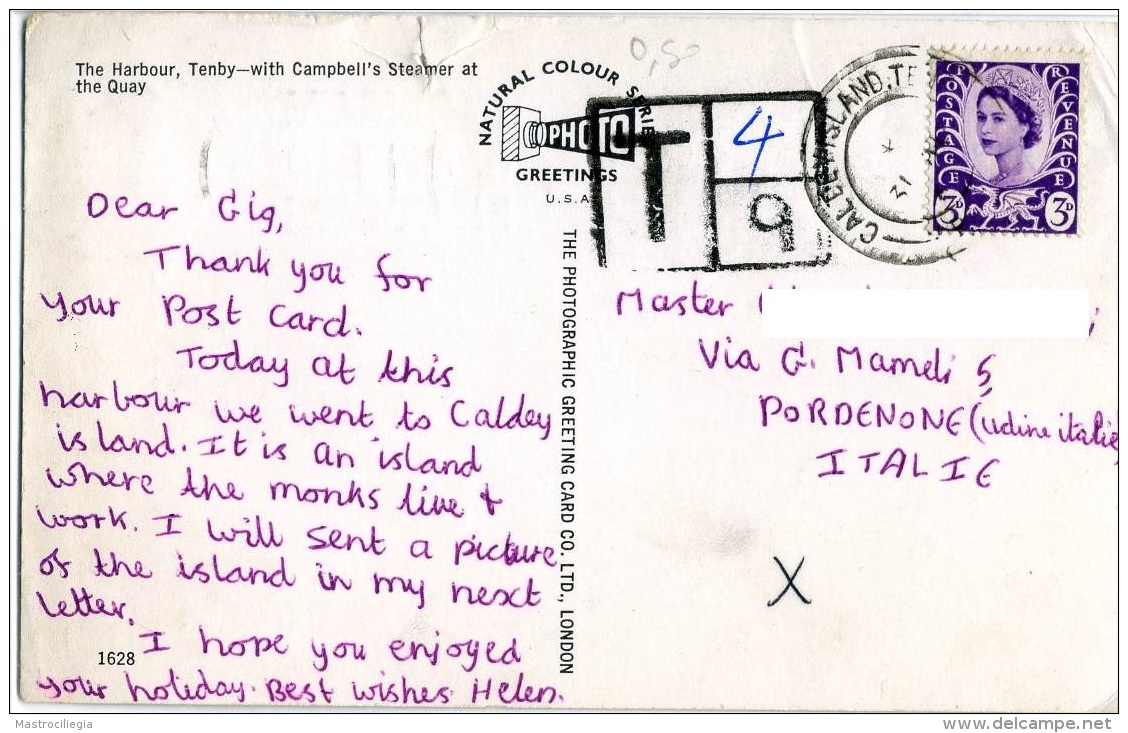 The Harbour, Tenby—with Campbell's Steamer at
the Quay
NATURAL COLOUR SERIES
PHOTO
GREETINGS
U.S.A
0,50
T
4
9
CALDEY ISLAND, TE
31
POSTAGE
REVENUE
3D
3D
Dear Gig,
Thank you for
your Post Card.
Today at this
harbour we went to Caldey
island. It is an island
where the monks live &
work. I will sent a picture
of the island in my next
letter.
I hope you enjoyed
your holiday. Best wishes Helen.
1628
THE PHOTOGRAPHIC GREETING CARD CO. LTD., LONDON
Master
Via G. Mameli 5,
PORDENONE (udine italie
ITALIE
X
Mastrociliegia
www.delcampe.net